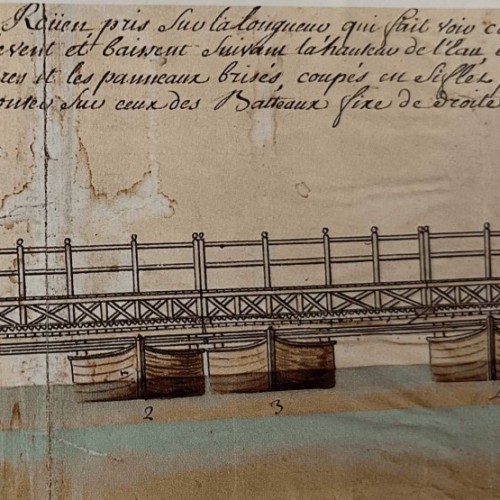 Roüen pris sur la longueur qui fait voir c
event et baissent suivant la hauteur de l'Eau
res et les panneaux brisés, coupés en sifles,
sur ceux des Batteaux fixe de droite
2 3